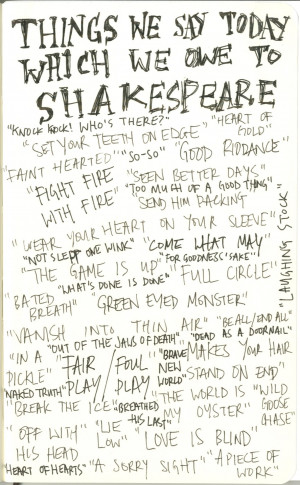 THINGS WE SAY TODAY
WHICH WE OWE TO
SHAKESPEARE
"KNOCK KNOCK! WHO'S THERE?" "HEART OF GOLD"
"SET YOUR TEETH ON EDGE"
"FAINT HEARTED" "SO-SO" "GOOD RIDDANCE"
"FIGHT FIRE WITH FIRE" "SEEN BETTER DAYS"
"TOO MUCH OF A GOOD THING"
SEND HIM PACKING
"WEAR YOUR HEART ON YOUR SLEEVE"
"LAUGHING STOCK"
"NOT SLEPT ONE WINK" "COME WHAT MAY"
"THE GAME IS UP" "FOR GOODNESS' SAKE"
"WHAT'S DONE IS DONE" "FULL CIRCLE"
"BATED BREATH" "GREEN EYED MONSTER"
"VANISH INTO THIN AIR" "BE ALL/END ALL"
"OUT OF THE JAWS OF DEATH" "DEAD AS A DOORNAIL"
"IN A PICKLE" FAIR PLAY/FOUL PLAY "BRAVE NEW WORLD" MAKES YOUR HAIR STAND ON END"
"NAKED TRUTH"
"BREAK THE ICE" "BREATHED HIS LAST" "THE WORLD IS MY OYSTER" "WILD GOOSE CHASE"
"OFF WITH HIS HEAD "LIE LOW" "LOVE IS BLIND"
"HEART OF HEARTS" "A SORRY SIGHT" "A PIECE OF WORK"